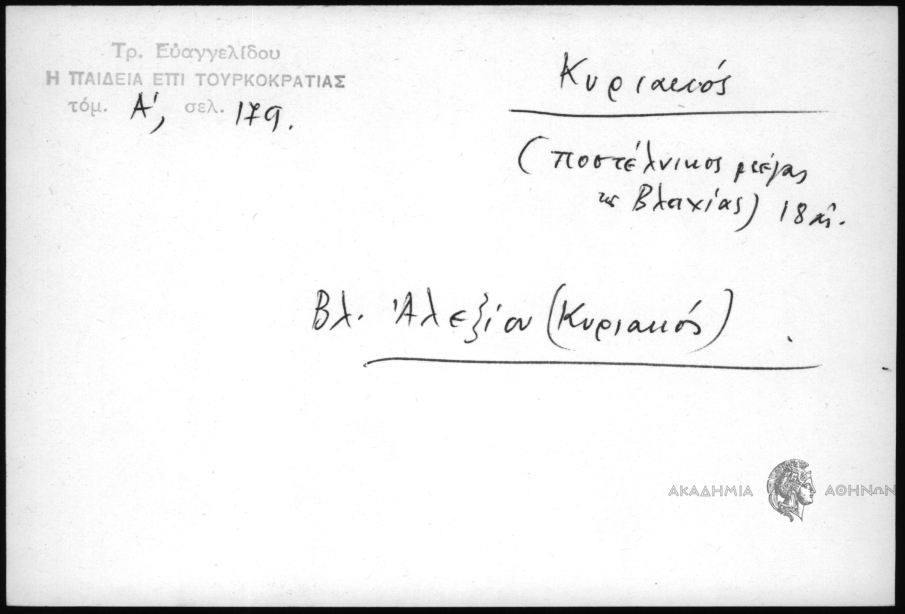 Τρ. Εὐαγγελίδου
Η ΠΑΙΔΕΙΑ ΕΠΙ ΤΟΥΡΚΟΚΡΑΤΙΑΣ
τόμ. Α', σελ. 179.
Κυριακός
(ποστέλνικος μέγας
της Βλαχίας) 18 αἰ.
Βλ. Ἀλεξίου (Κυριακός).
ΑΚΑΔΗΜΙΑ ΑΘΗΝΩΝ